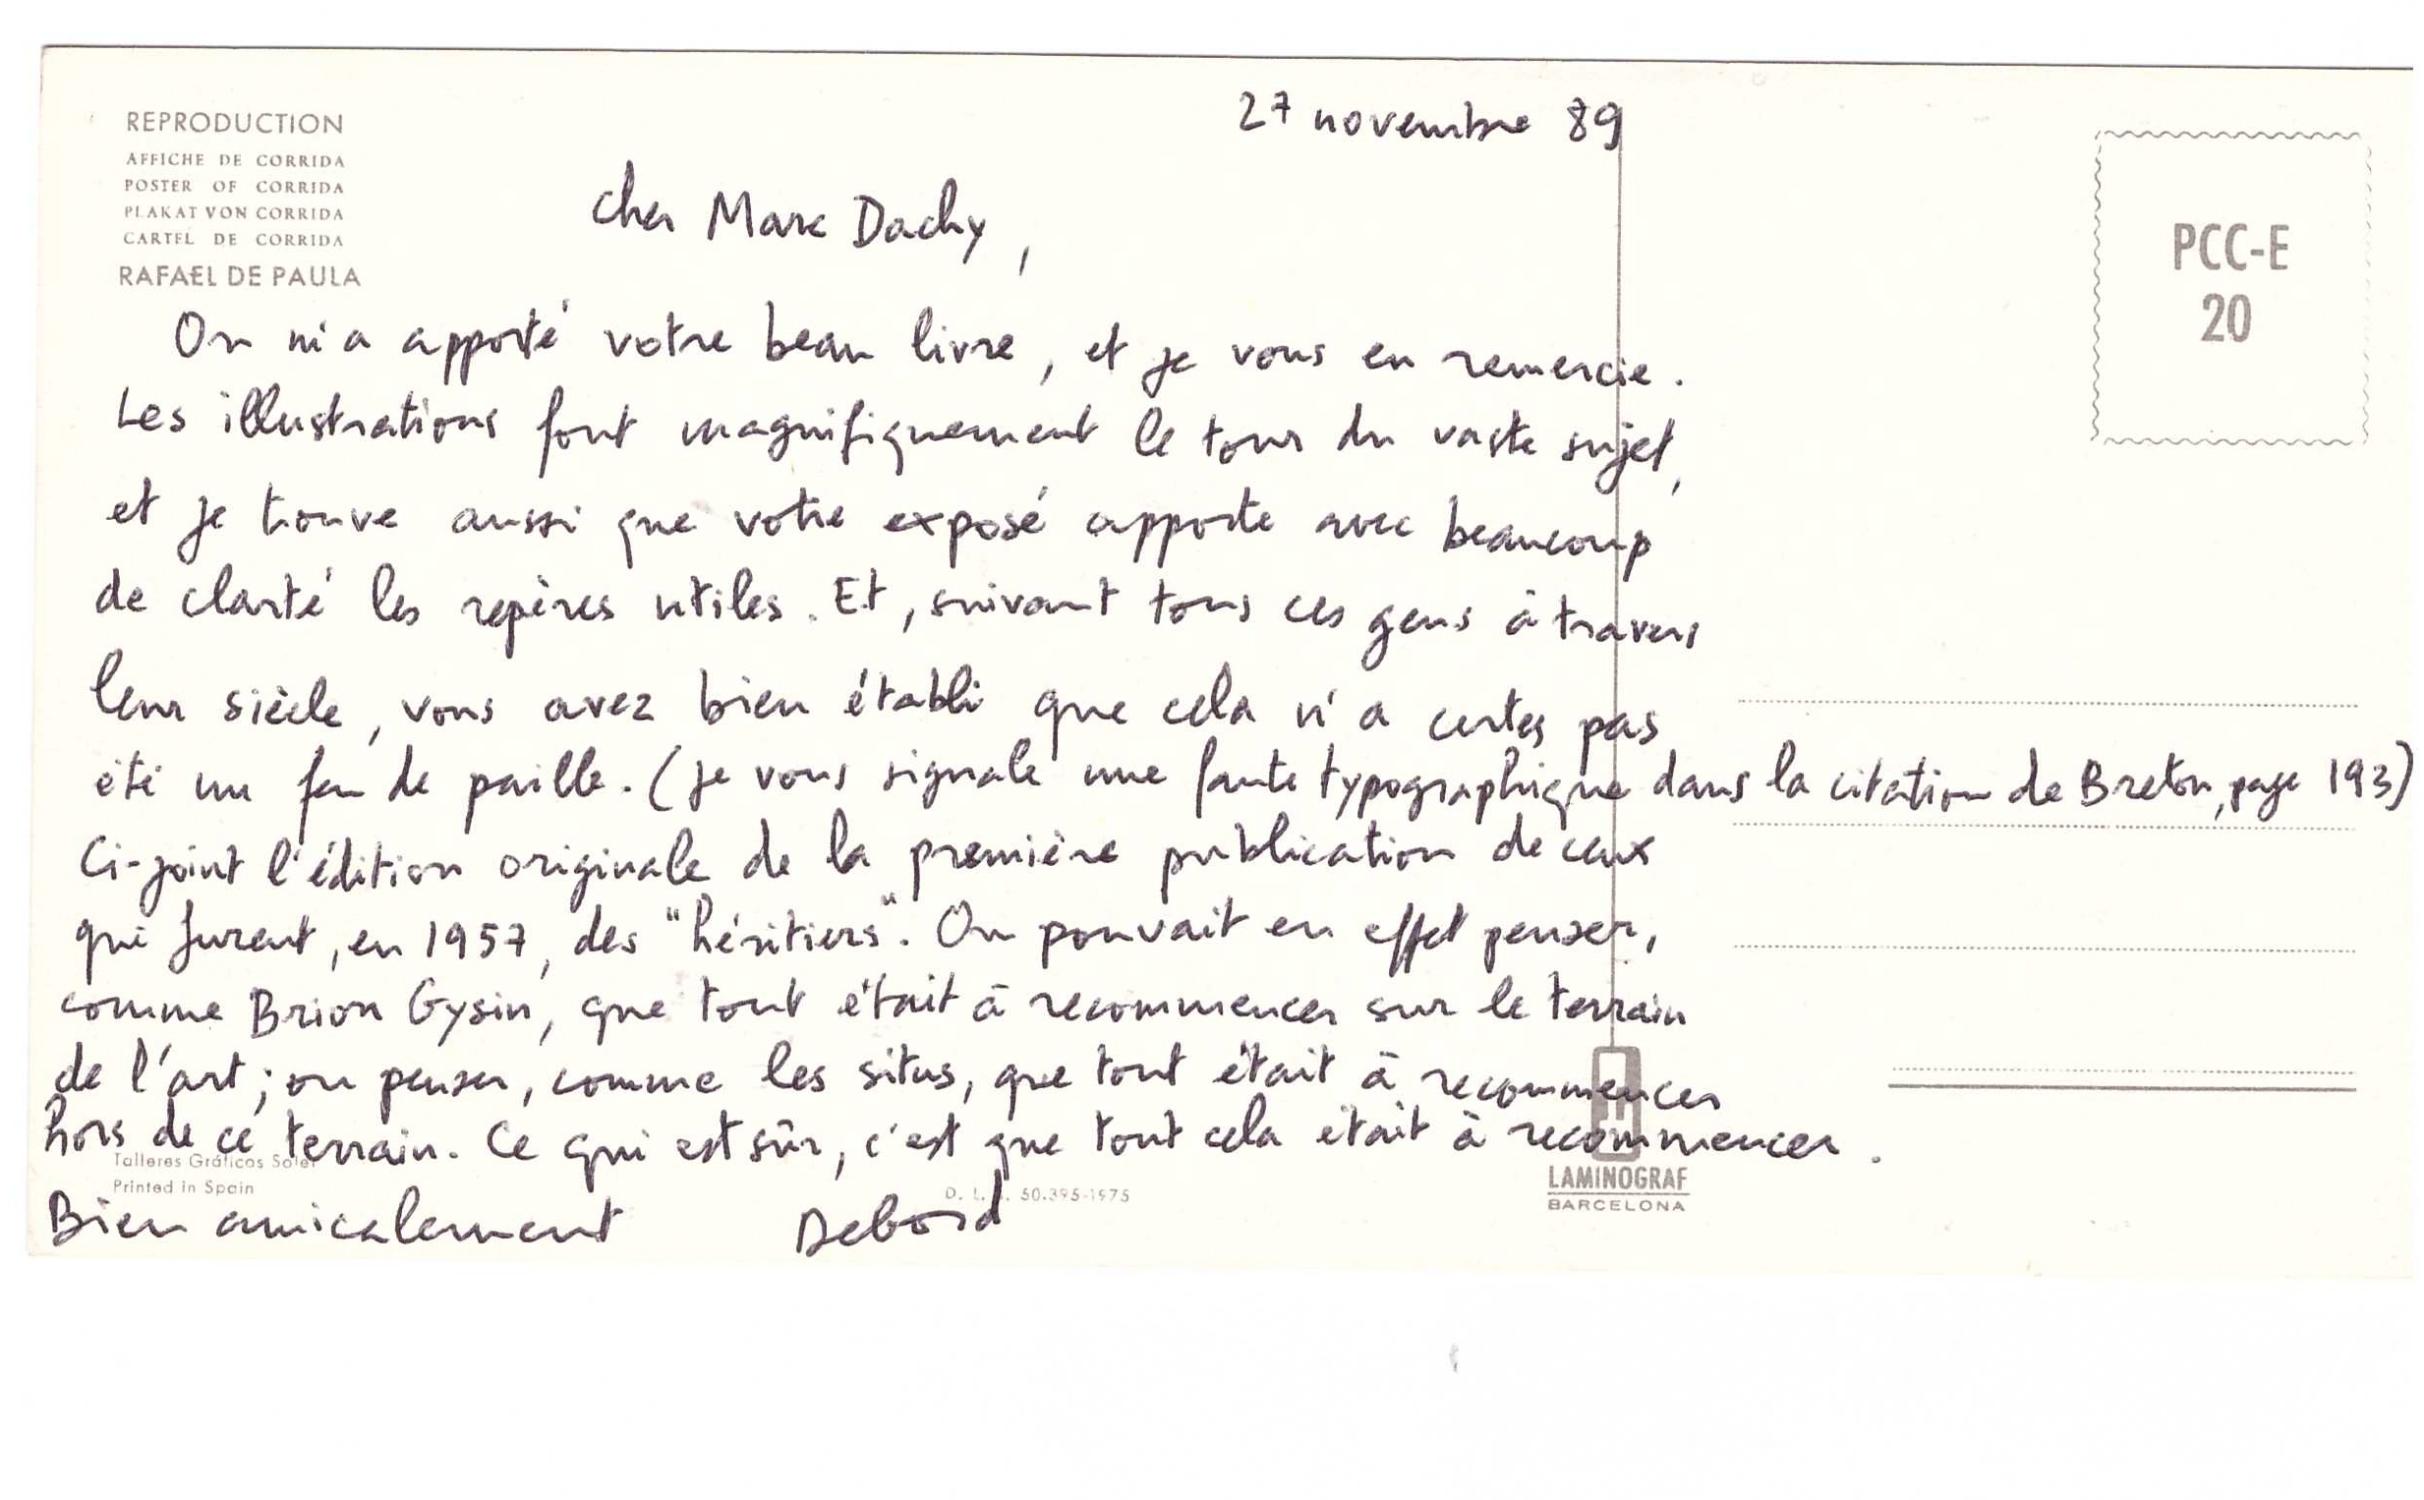 REPRODUCTION
AFFICHE DE CORRIDA
POSTER OF CORRIDA
PLAKAT VON CORRIDA
CARTEL DE CORRIDA
RAFAEL DE PAULA
27 novembre 89
PCC-E
20
Cher Marc Dachy,
On m'a apporté votre beau livre, et je vous en remercie.
Les illustrations font magnifiquement le tour du vaste sujet,
et je trouve aussi que votre exposé apporte avec beaucoup
de clarté les repères utiles. Et, suivant tous ces gens à travers
leur siècle, vous avez bien établi que cela n'a certes pas
été un feu de paille. (je vous signale une faute typographique dans la citation de Breton, page 193)
Ci-joint l'édition originale de la première publication de ceux
qui furent, en 1957, des "héritiers". On pouvait en effet penser,
comme Brion Gysin, que tout était à recommencer sur le terrain
de l'art ; ou penser, comme les situs, que tout était à recommencer
hors de ce terrain. Ce qui est sûr, c'est que tout cela était à recommencer.
Bien amicalement Debord
Talleres Gráficos Soler
Printed in Spain
50.395-1975
LAMINOGRAF
BARCELONA